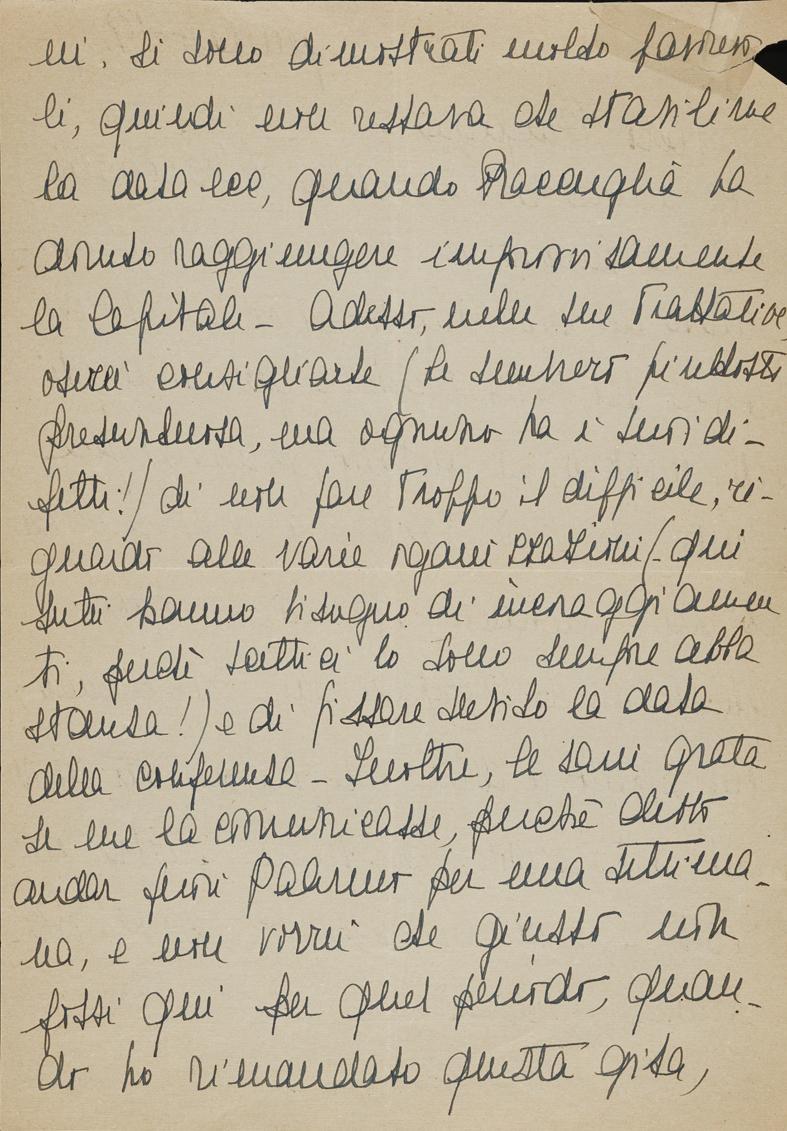 ni. Si sono dimostrati molto favorevo
li, quindi non restava che stabilirne
la data ecc, quando Raccuglia ha
dovuto raggiungere improvvisamente
la Capitale – Adesso, nelle sue trattative,
oserei consigliarle (Le sembrerò piuttosto
presuntuosa, ma ognuno ha i suoi di-
fetti!) di non fare troppo il difficile, ri-
guardo alle varie organizzazioni (qui
tutti hanno bisogno di incoraggiamen
ti, perchè scettici lo sono sempre abba
stanza!) e di fissare subito la data
della conferenza – Inoltre, Le sarei grata
se me la comunicasse, perchè debbo
andar fuori Palermo per una settima-
na, e non vorrei che giusto non
fossi qui per quel periodo, quan-
do ho rimandato questa gita,